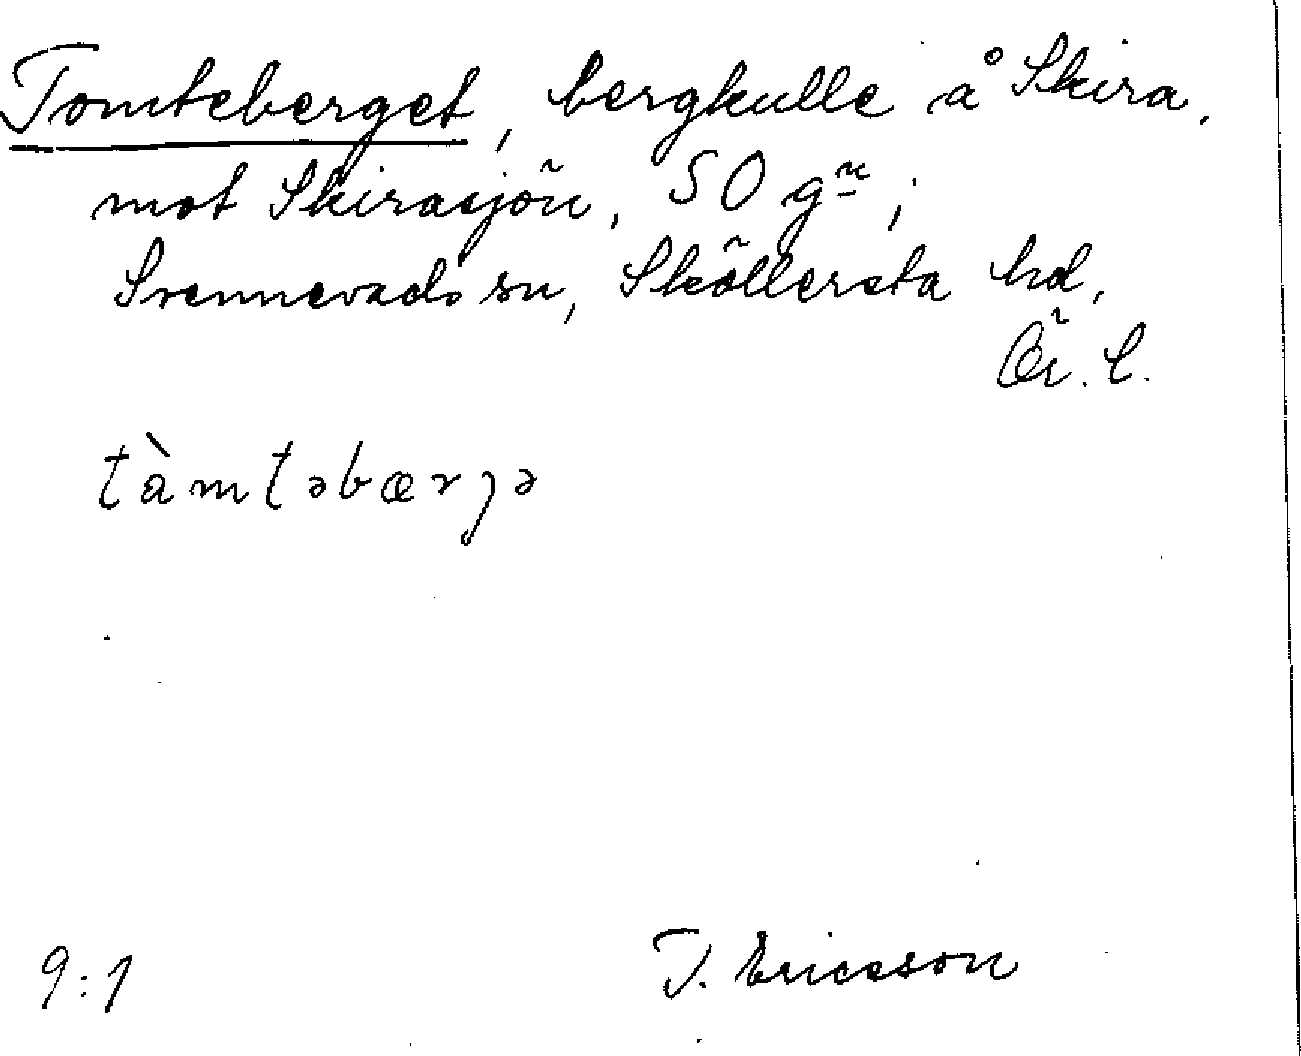 Tomteberget, bergkulle å Skira,
mot Skirasjön, SO gn;
Svennevads sn, Sköllersta hd,
Ör. l.
tàmtəbærjə
9:1 T. Ericsson